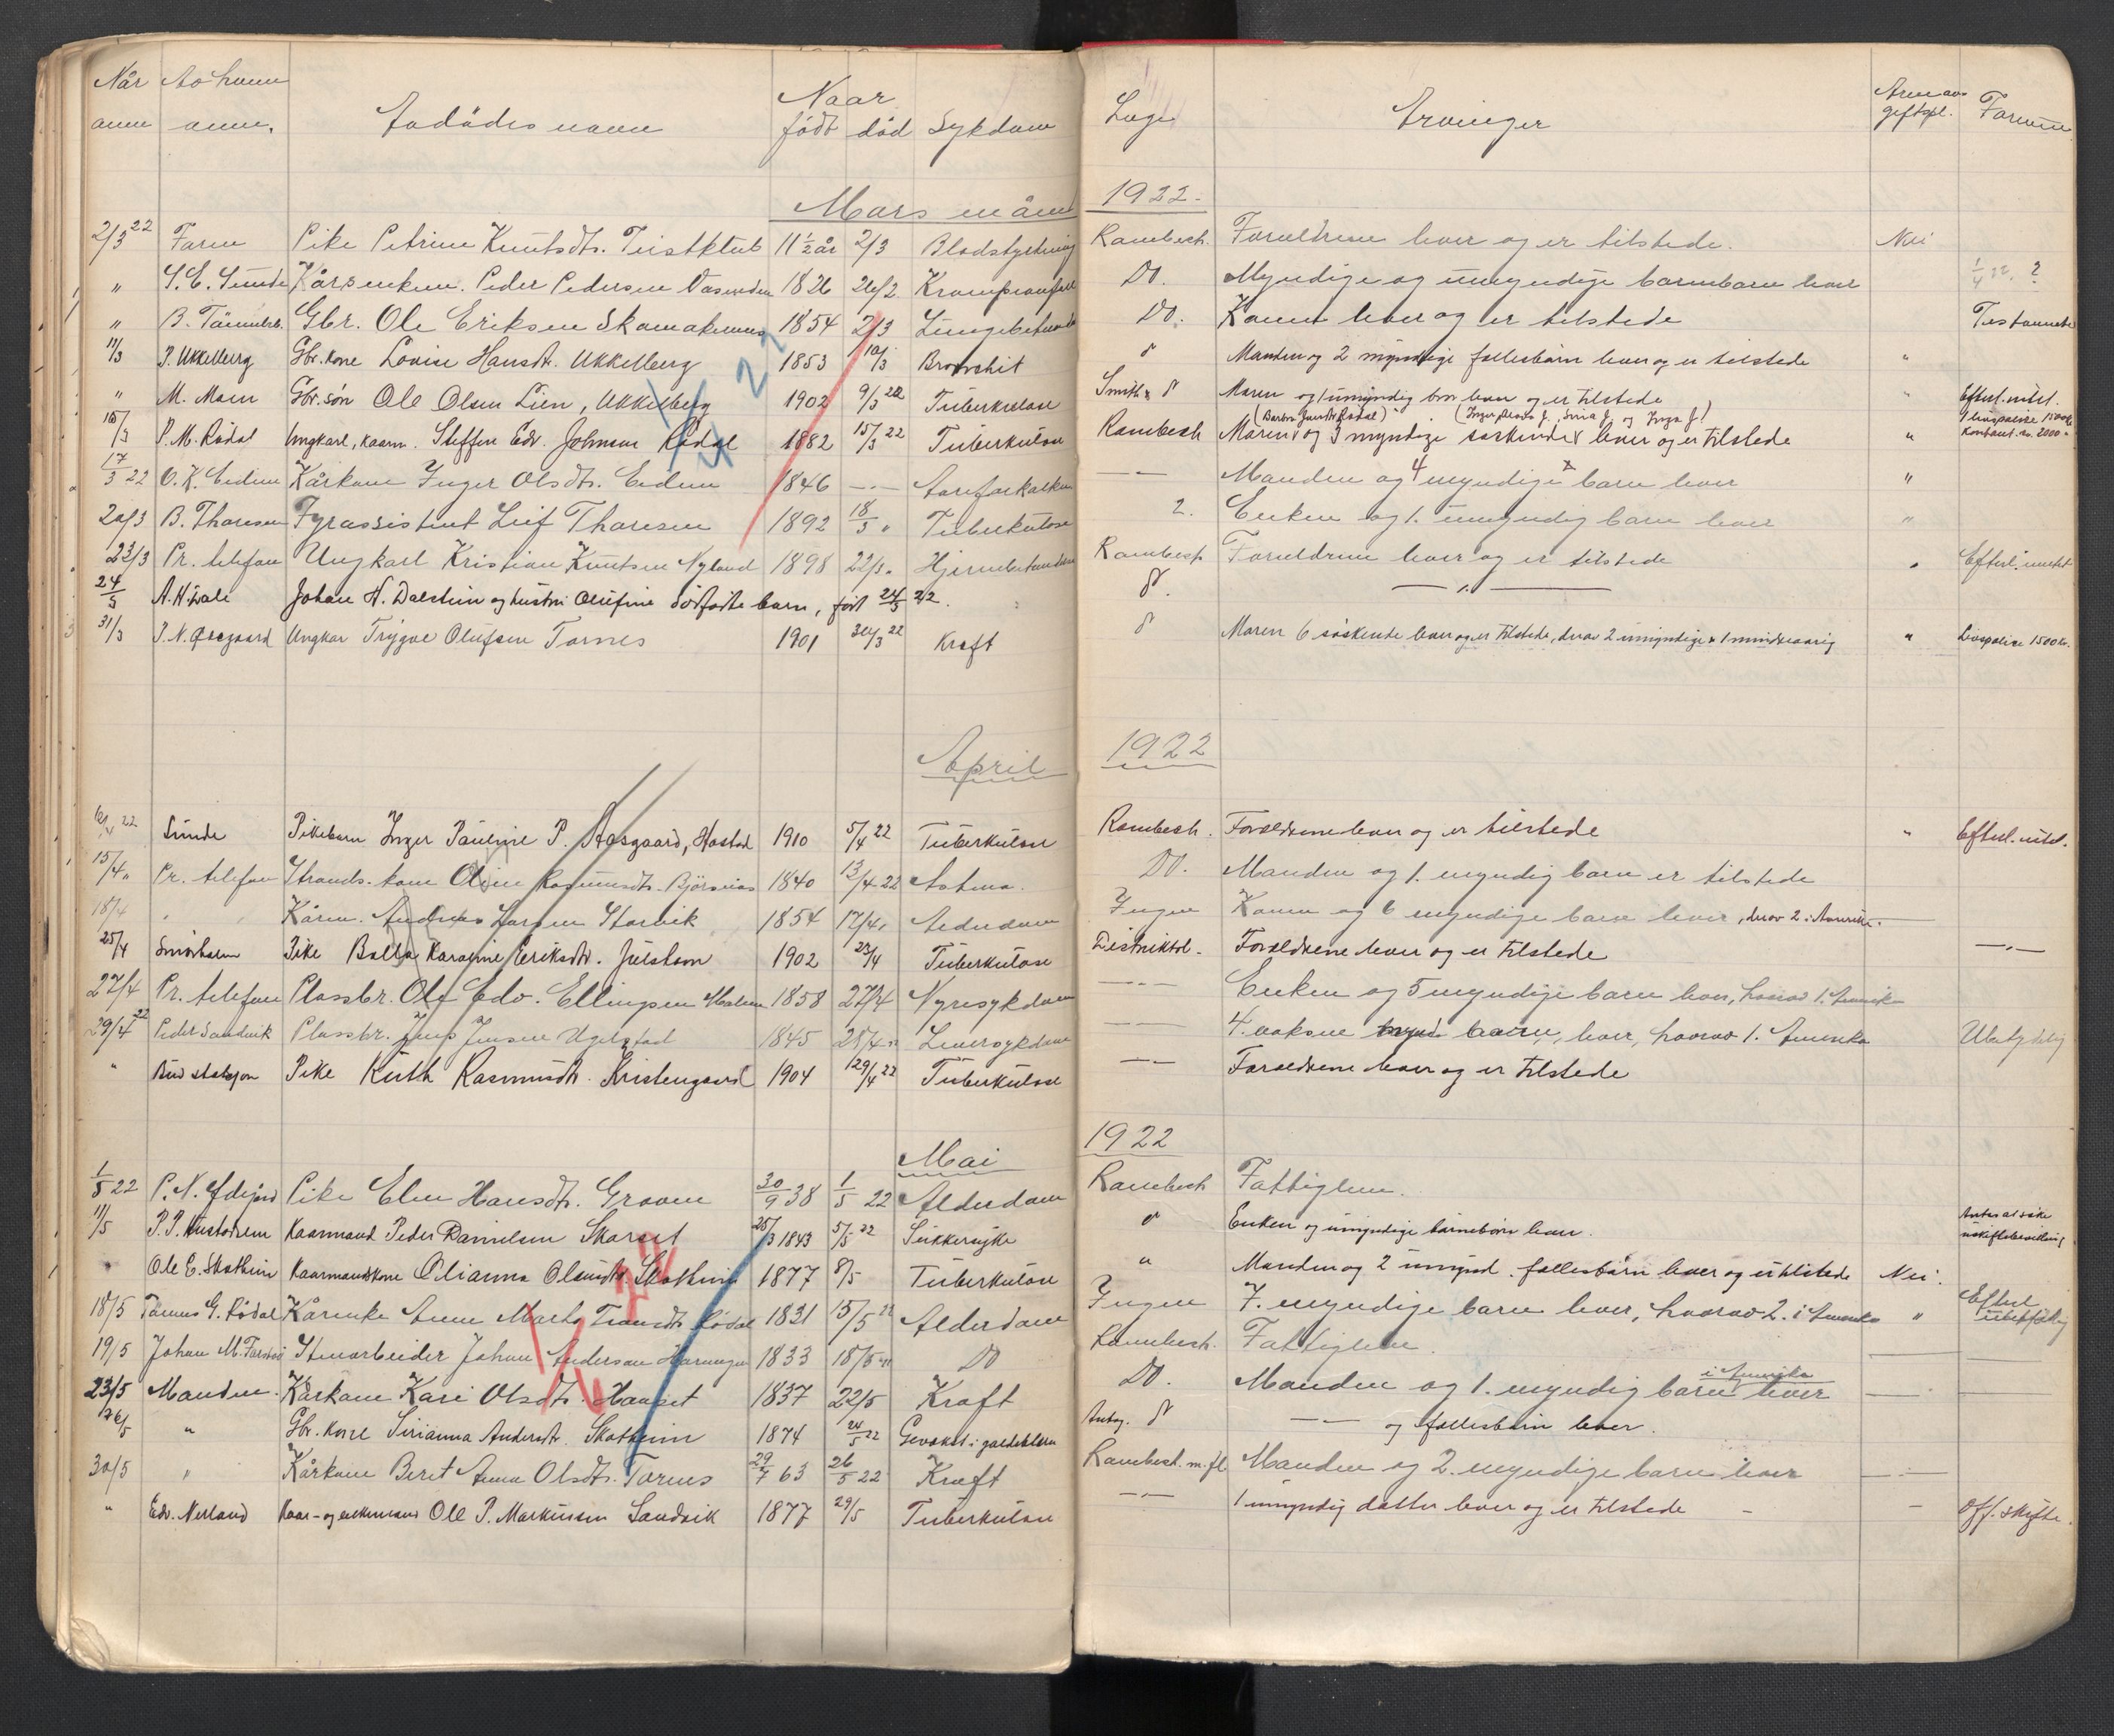 Når Av hvem Naar Læge Arveavgiftspl. Formue
anm anm. Avdødes navn født død Sykdom Arvinger
Mars måned 1922.
2/3 22 Faren Pike Petrine Knutsdtr. 11 1/2 år 2/3 Blodstyrtning Rambech. Forældrene lever og er tilstede. Nei
" S. E. Sunde Kårenkem. Peder Pedersen 1826 26/2 Krampeanfall Do. Myndige og umyndige barnebarn lever 1/4 22. ?
" B. Gbr. Ole Eriksen 1854 2/3 Lungebetænd Do. Konen lever og er tilstede
11/3 P. Ukkelberg Gbr. kone Lovise Hansdt. Ukkelberg 1853 10/3 Bronchit Manden og 2 myndige fællesbørn lever og er tilstede "
" M. Moen Gbr. søn Ole Olsen Lien, Ukkelberg 1902 9/3 22 Tuberkulose Smith Moren og 1 umyndig bror lever og er tilstede " Efterl. ubet.
15/3 P. M. Rødal Ungkarl, kaarm. Steffen Edv. Johnsen Rødal 1882 15/3 22 Tuberkulose Rambech Moren og 3 myndige søskende lever og er tilstede " 1 livspolise 1500 kr Kontant kr. 2000
17/3 22 O. K. Eidem Kårkone Inger Olsdtr. Eidem 1846 -"- Aareforkalkn -"- Manden og 4 myndige barn lever "
20/3 B. Thoresen Fyrassistent Leif Thoresen 1892 18/3 " Tuberkulose 2. Enken og 1. umyndig barn lever "
23/3 Pr. telefon Ungkarl Kristian Knutsen Nyland 1898 22/3 " Hjernebetændelse Rambech Forældrene lever og er tilstede " Efterl. intet
24/3 A. H. Dale Johan H. Dalstein og hustru Olufine dødfødte barn, født 24/3 22. -"-
31/3 P. N. Ødegaard Ungkar Trygve Olufsen Tornes 1901 30/3 22 Kræft Moren 6 søskende lever og er tilstede, derav 2 umyndige & 1 mindreaarig " Livspolise 1500 kr.
April 1922
6/4 22 Sunde Pikebarn Inger Pauline P. Aasgaard, Hostad 1910 5/4 22 Tuberkulose Rambech. Forældrene lever og er tilstede " Efterl. intet.
15/4 " Pr. telefon Strands. kone Oline Rasmusdtr. Bjørsnos 1840 13/4 22 Astma. Do. Manden og 1. myndig barn er tilstede
18/4 " " Kårm. Andreas Larsen Storvik 1854 17/4 " Alderdom Ingen Konen og 6 myndige barn lever, derav 2 i Amerika.
25/4 Pike Karoline Eriksdtr. Julshavn 1902 23/4 Tuberkulose Distriktsl. Forældrene lever og er tilstede -"-
27/4 Pr. telefon Plassbr. Ole Edv. Ellingsen Malmen 1858 27/4 Nyresykdom -"- Enken og 5 myndige barn lever, hvorav 1. Amerika
29/4 22 Peder Sandvik Plassbr. Jens Jensen Ugelstad 1845 28/4 " Leversykdom -"- 4. voksne barn, lever, hvorav 1. Amerika Ubetydelig
" Bud stasjon Pike Ruth Rasmusdtr. Kristengaard 1904 29/4 22 Tuberkulose -"- Forældrene lever og er tilstede
Mai 1922
1/5 22 P. N. Pike Elen Hansdtr. Groven 30/9 38 1/5 22 Alderdom Rambech Fattiglem.
11/5 P. P. Kaarmand Peder Danielsen Skarset 25/3 1843 5/5 22 Sukkersyke Enken og umyndige barnebørn lever.
" Ole E. Skotheim Kaarmandskone Olianna Olsdtr. Skotheim 1877 8/5 Tuberkulose " Manden og 2 umynd. fællesbørn lever og er tilstede Nei.
18/5 G. Rødal Kårenke Anne Marta Rødal 1831 15/5 22 Alderdom Ingen 7. myndige barn lever, hvorav 2. i Amerika " Efterl. ubetydelig
19/5 Johan M. Stenarbeider Johan Andersen 1833 18/5 " Do Rambech. Fattiglem.
23/5 Manden. Kårkone Kari Olsdtr. Hauset 1837 22/5 Kræft Do. Manden og 1. myndig barn i Amerika lever
26/5 " Gbr. kone Sirianna Andersdtr. Skotheim 1874 24/5 22 Gevækst i galdeblæren Antog. -"- og fællesbørn lever.
30/5 " Kårkone Beret Anna Olsdtr. Tornes 29/7 63 26/5 22 Kræft Rambech. m. fl. Manden og 2. myndige barn lever
" Edv. Nerland Kaar- og enkemand Ole P. Markussen Sandvik 1877 29/5 Tuberkulose -"- 1 umyndig datter lever og er tilstede - - Off. skifte.